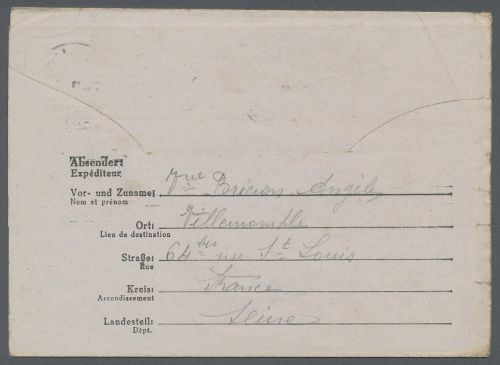 Absender:
Expéditeur
Vor- und Zuname: Vve Angèle
Nom et prénom
Ort: Villemomble
Lieu de destination
Straße: 64 bis rue St Louis
Rue
Kreis: France
Arrondissement
Landesteil: Seine
Dépt.